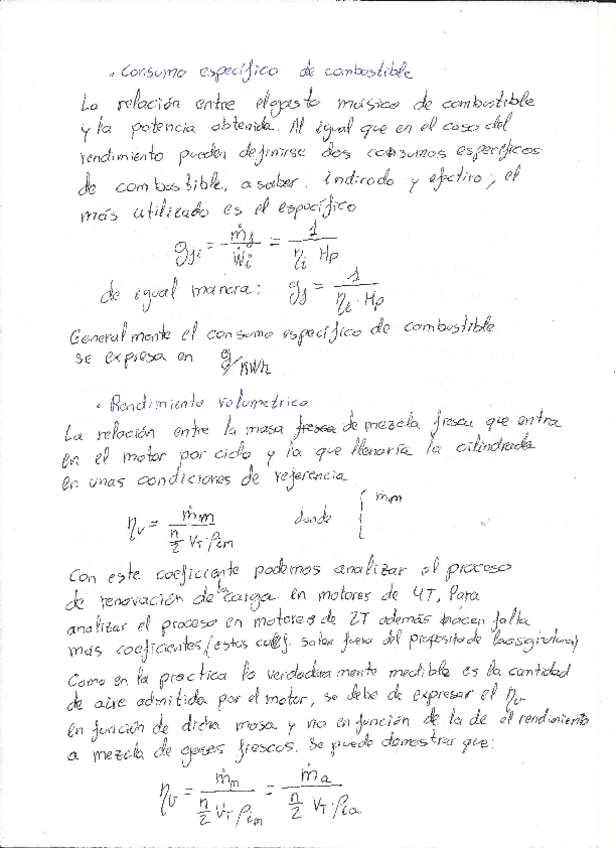 · Consumo específico de combustible
La relación entre el gasto másico de combustible
y la potencia obtenida. Al igual que en el caso del
rendimiento pueden definirse dos consumos específicos
de combustible, a saber. indicado y efectivo; el
más utilizado es el específico
g_fi = ṁ_f / Ẇ_i = 1 / (η_i Hp)
de igual manera: g_f = 1 / (η_e · Hp)
Generalmente el consumo específico de combustible
se expresa en g/KWh
· Rendimiento volumetrico
La relación entre la masa fresca de mezcla fresca que entra
en el motor por ciclo y la que llenaría la cilindrada
en unas condiciones de referencia
η_v = ṁ_m / (n/2 V_T · ρ_im) donde { ṁ_m
Con este coeficiente podemos analizar el proceso
de renovación de la carga en motores de 4T, Para
analizar el proceso en motores de 2T además hacen falta
más coeficientes (estos coef. salen fuera del proposito de la asignatura)
Como en la practica lo verdaderamente medible es la cantidad
de aire admitida por el motor, se debe de expresar el η_v
en función de dicha masa y no en función de la de el rendimiento
a mezcla de gases frescos. Se puede demostrar que:
η_v = ṁ_m / (n/2 V_T ρ_im) = ṁ_a / (n/2 V_T · ρ_ia)